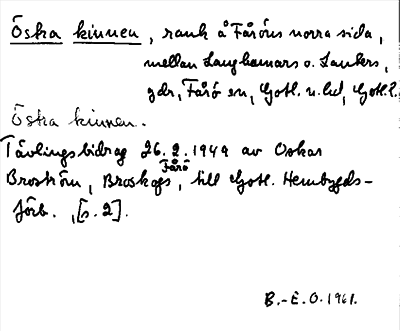 Öska kinnen, rauk å Fåröns norra sida,
mellan Langhamars o. Lauters,
gdr, Fårö sn, Gotl. n. hd, Gotl. l.
Öska kinnen.
Tävlingsbidrag 26.2.1949 av Oskar
Fårö
Broström, Broskogs, till Gotl. Hembygds-
förb., [s. 2].
B.-E.O. 1961.